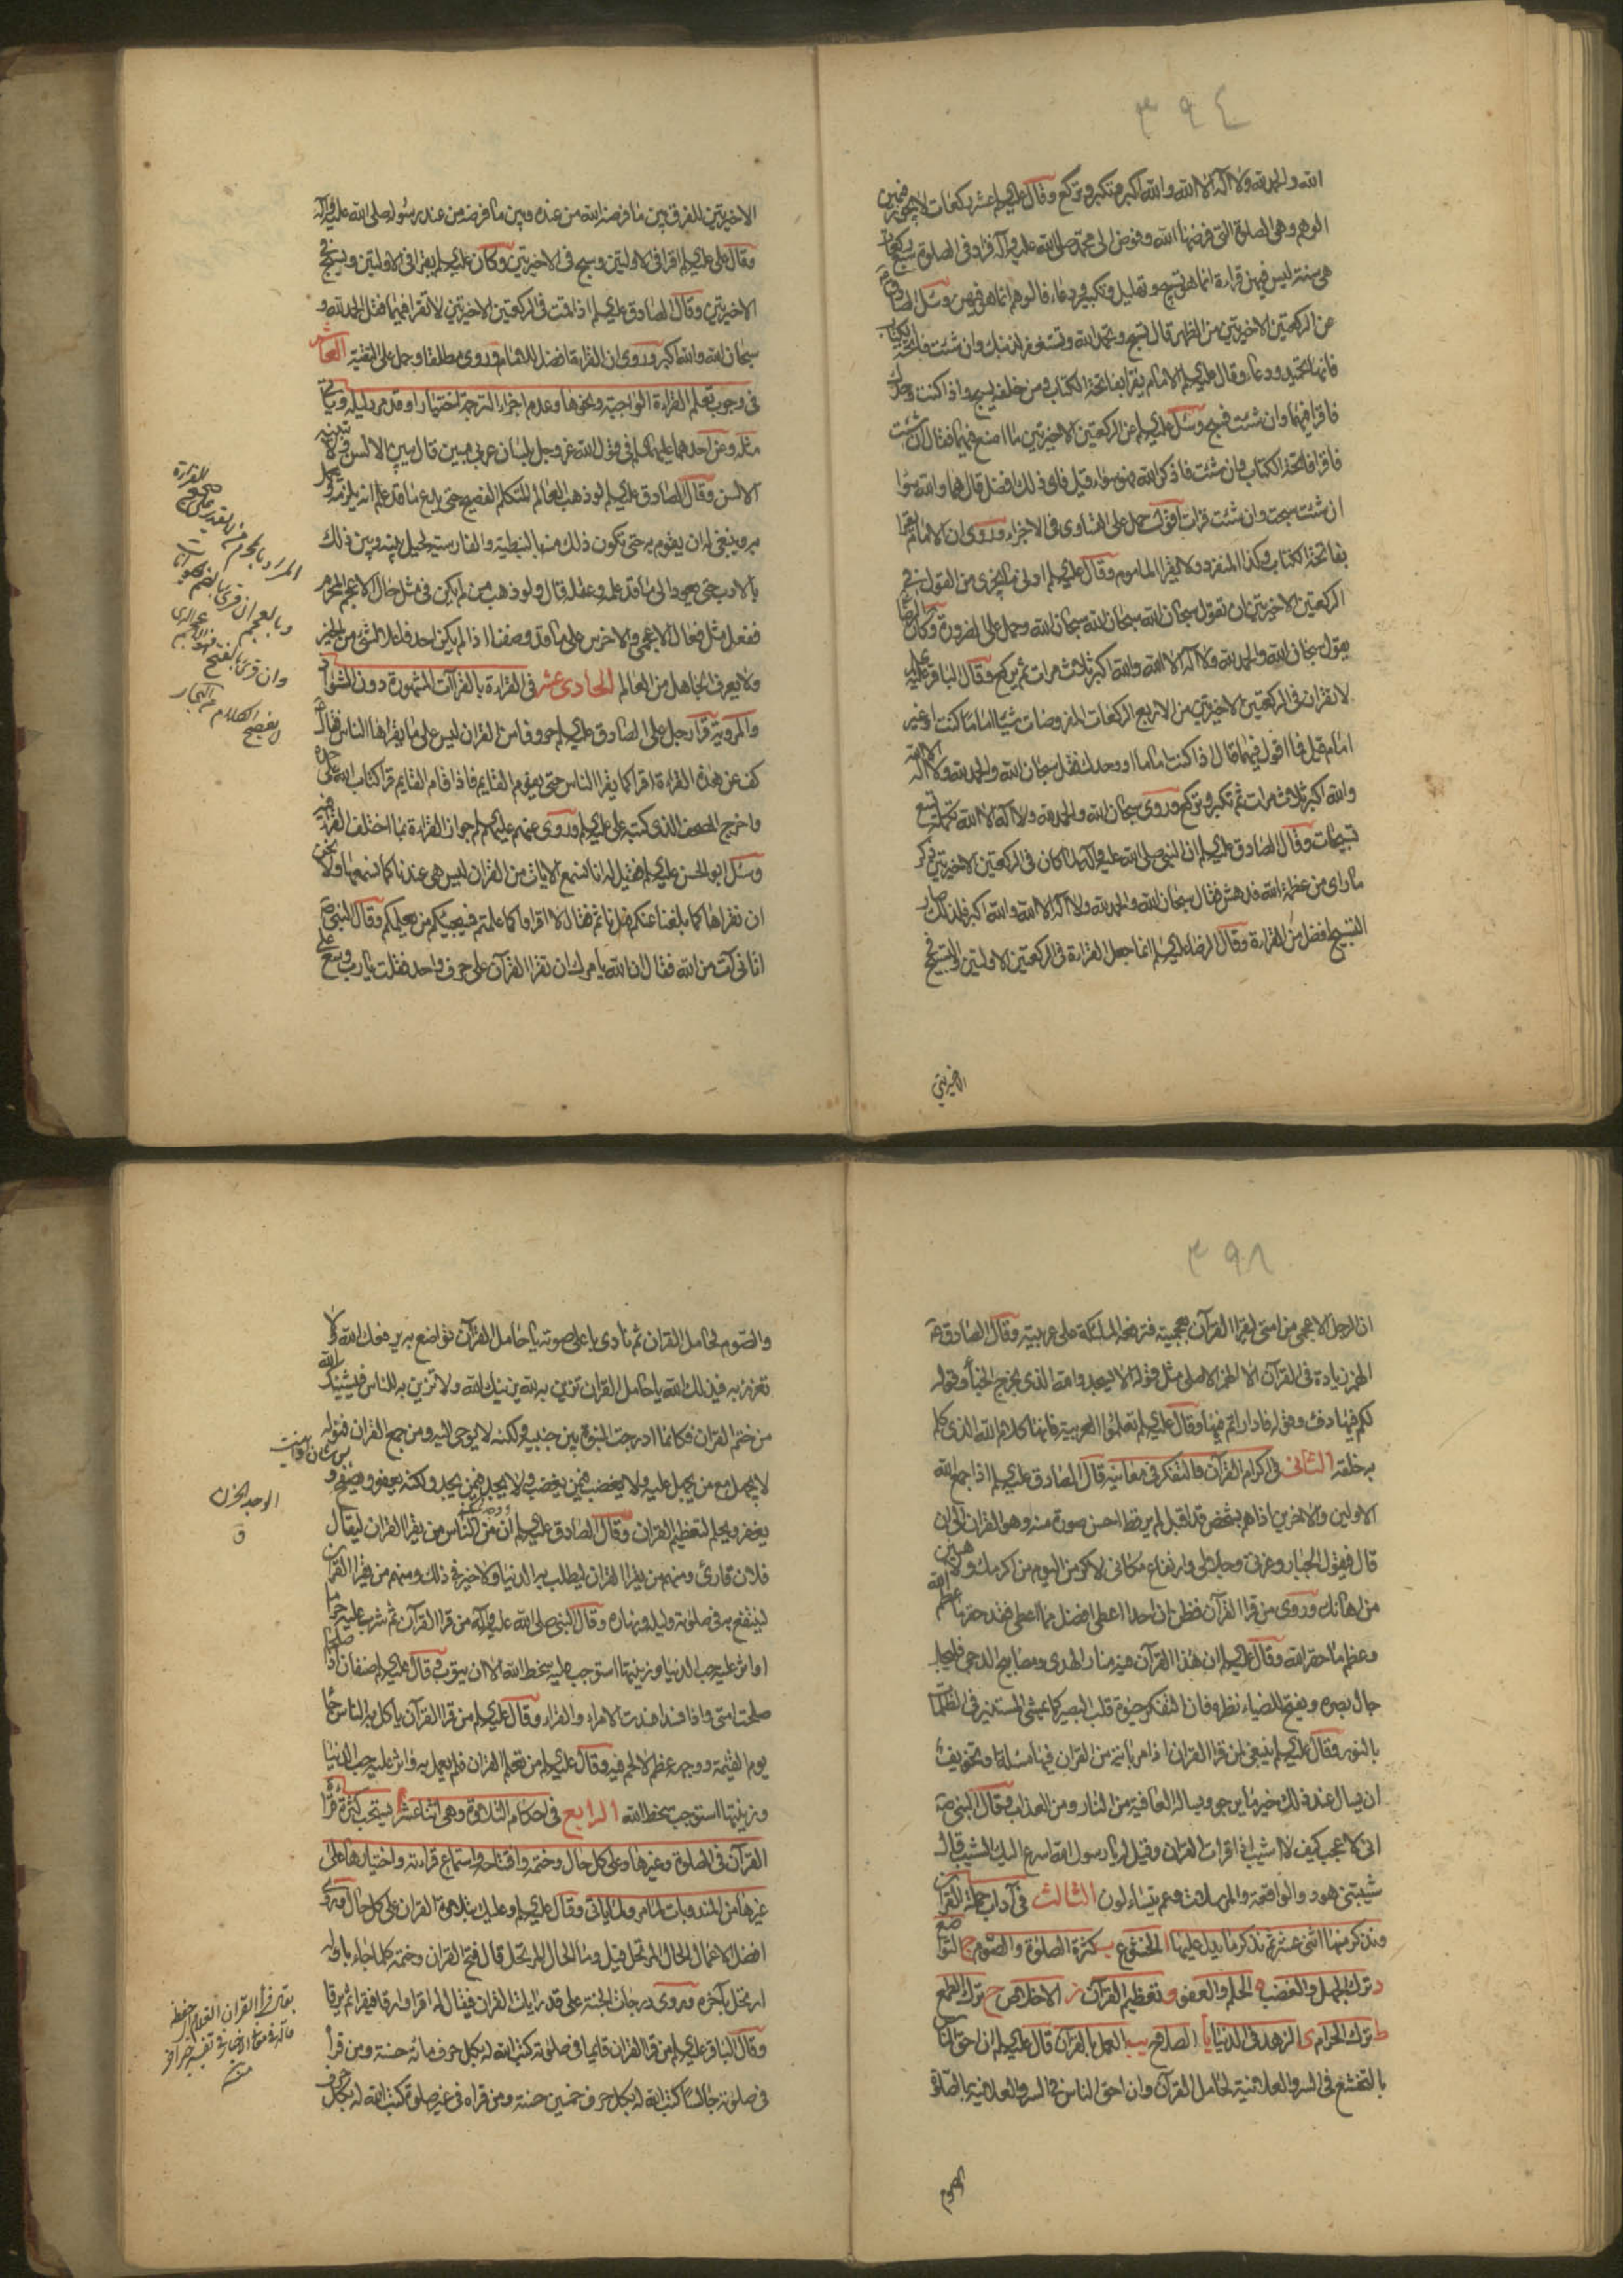 ٣٩٤
الله والحمد لله ولا اله الا الله والله اكبر ثم تكبر وتركع وقال عليه السلم عشر ركعات لا يجوز فيهن
الوهم وهى الصلوة التى فرضها الله وفوض الى محمد صلى الله عليه وآله فزاد فى الصلوة سبع ركعات
هى سنة ليس فيهن قراءة انما هو تسبيح وتهليل وتكبير ودعاء فالوهم انما هو فيهن وسئل الصادق
عن الركعتين الاخيرتين من الظهر قال تسبح وتحمد الله وتستغفر لذنبك وان شئت فاتحة الكتاب
فانها تحميد ودعاء وقال عليه السلم الامام يقرا بفاتحة الكتاب ومن خلفه يسبح واذا كنت وحدك
فاقرا فيهما وان شئت فسبح وسئل عليه السلم عن الركعتين الاخيرتين ما اصنع فيهما فقال ان شئت
فاقرا فاتحة الكتاب وان شئت فاذكر الله فهو سواء قيل فاى ذلك افضل قال هما والله سواء
ان شئت سبحت وان شئت قرات اقول حمل على التساوى فى الاجزاء وروى ان الامام يقرا
بفاتحة الكتاب وكذا المنفرد ولا يقرا الماموم وقال عليه السلم ادنى ما يجزى من القول فى
الركعتين الاخيرتين ان تقول سبحان الله سبحان الله سبحان الله وحمل على الضرورة وكان الرضا
يقول سبحان الله والحمد لله ولا اله الا الله والله اكبر ثلاث مرات ثم يركع وقال الباقر عليه
لا تقران فى الركعتين الاخيرتين من الاربع الركعات المفروضات شيئا اماما كنت او غير
امام قيل فما اقول فيهما قال اذا كنت اماما او وحدك فقل سبحان الله والحمد لله ولا اله الا الله
والله اكبر ثلاث مرات ثم تكبر وتركع وروى سبحان الله والحمد لله ولا اله الا الله تكمله تسع
تسبيحات وقال الصادق عليه السلم ان النبى صلى الله عليه وآله لما كان فى الركعتين الاخيرتين ذكر
ما راى من عظمة الله فدهش فقال سبحان الله والحمد لله ولا اله الا الله والله اكبر فلذلك صار
التسبيح افضل من القراءة وقال الرضا عليه السلم انما جعل القراءة فى الركعتين الاولتين والتسبيح فى
الاخيرتين
الاخيرتين للفرق بين ما فرضه الله من عنده وبين ما فرضه من عند رسوله صلى الله عليه وآله
وقال على عليه السلم اقرا فى الاولتين وسبح فى الاخيرتين وكان عليه السلم يقرا فى الاولتين ويسبح فى
الاخيرتين وقال الصادق عليه السلم اذا قمت فى الركعتين الاخيرتين لا تقرا فيهما فقل الحمد لله و
سبحان الله والله اكبر وروى ان القراءة افضل للامام وروى مطلقا وحمل على التقية العاشر
فى وجوب تعلم القراءة الواجبة ونحوها وعدم اجزاء الترجمة اختيارا وقد مر دليله وياتى
مثله وعن احدهما عليهما السلم فى قول الله عز وجل بلسان عربى مبين قال يبين الالسن ولا تبينه
الالسن وقال الصادق عليه السلم لو ذهب العالم المتكلم الفصيح حتى يدع ما قد علم انه يلزمه ويعمل
به وينبغى له ان يقوم به حتى تكون ذلك منه بالنبطية والفارسية لحيل بينه وبين ذلك
بالادب حتى يعود الى ما قد علمه وعقله قال ولو ذهب من لم يكن فى مثل حال الاعجم المحرم
ففعل مثل فعال الاعجمى والاخرس على ما قد وصفنا اذا لم يكن احد فاعلا لشئ من الخير
ولا يعرف الجاهل من العالم الحادى عشر فى القراءة بالقراآت المشهورة دون الشواذ
والمروية قرا رجل على الصادق عليه السلم حروفا من القران ليس على ما يقراها الناس فقال
كف عن هذه القراءة اقرا كما يقرا الناس حتى يقوم القايم فاذا قام القايم قرا كتاب الله على حده
واخرج المصحف الذى كتبه على عليه السلم وروى عنهم عليهم السلم جواز القراءة بما اختلف القراء فيه
وسئل ابو الحسن عليه السلم فقيل له انا نسمع الايات من القران ليس هى عندنا كما نسمعها ولا نحسن
ان نقراها كما بلغنا عنكم فهل ناثم فقال لا اقراوا كما علمتم فسيجيئكم من يعلمكم وقال النبى ص
اتانى آت من الله فقال ان الله يامرك ان تقرا القرآن على حرف واحد فقلت يا رب وسع على
المراد بالمحرم
وان قرئ بالفتح
٣٩٨
ان الرجل الاعجمى من امتى ليقرا القرآن بعجميته فترفعه الملئكة على عربيته وقال الصادق ع
الهمز زيادة فى القرآن الا الهمز الاصلى مثل قوله الا يسجدوا لله الذى يخرج الخبأ وقوله
لكم فيها دفء وقوله فادارأتم فيها وقال عليه السلم تعلموا العربية فانها كلام الله الذى كلم
به خلقه الثانى فى اكرام القرآن والتفكر فى معانيه قال الصادق عليه السلم اذا جمع الله
الاولين والاخرين اذا هم بشخص قد اقبل لم ير قط احسن صورة منه وهو القران الى ان
قال فيقول الجبار وعزتى وجلالى وارتفاع مكانى لاكرمن اليوم من اكرمك ولاهينن
من اهانك وروى من قرا القرآن فظن ان احدا اعطى افضل مما اعطى فقد حقر ما عظم الله
وعظم ما حقر الله وقال عليه السلم ان هذا القرآن فيه منار الهدى ومصابيح الدجى فليجل
جال بصره ويفتح للضياء نظره فان التفكر حيوة قلب البصير كما يمشى المستنير فى الظلمات
بالنور وقال عليه السلم ينبغى لمن قرا القران اذا مر باية من القران فيها مسئلة او تخويف
ان يسال عند ذلك خير ما يرجو ويساله العافية من النار ومن العذاب وقال النبى ص
انى لاعجب كيف لا اشيب اذا قرات القران وقيل له يا رسول الله اسرع اليك الشيب قال
شيبتنى هود والواقعة والمرسلات وعم يتساءلون الثالث فى آداب حملة القران
ونذكر منها اثنى عشر ثم نذكر ما يدل عليها ا الخشوع ب كثرة الصلوة والصوم ج التواضع
د ترك الجهل والغضب ه الحلم والعفو و تعظيم القرآن ز الاخلاص ح ترك الطمع
ط ترك الحرام ى الزهد فى الدنيا يا الصلاح يب العمل بالقرآن قال عليه السلم ان احق الناس
بالتخشع فى السر والعلانية لحامل القرآن وان احق الناس فى السر والعلانية بالصلوة
والصوم
والصوم لحامل القران ثم نادى باعلى صوته يا حامل القرآن تواضع به يرفعك الله ولا
تعزز به فيذلك الله يا حامل القران تزين به لله يزينك الله ولا تزين به للناس فيشينك الله
من ختم القران فكانما ادرجت النبوة بين جنبيه ولكنه لا يوحى اليه ومن جمع القران فنوله
لا يجهل مع من يجهل عليه ولا يغضب فيمن يغضب ولا يجد فيمن يجد ولكنه يعفو ويصفح و
يغفر ويحلم لتعظيم القران وقال الصادق عليه السلم ان من الناس من يقرا القران ليقال
فلان قارئ ومنهم من يقرا القران ليطلب به الدنيا ولا خير فى ذلك ومنهم من يقرا القران
لينتفع به فى صلوته وليله ونهاره وقال النبى صلى الله عليه وآله من قرا القرآن ثم شرب عليه حراما
او اثر عليه حب الدنيا وزينتها استوجب عليه سخط الله الا ان يتوب وقال عليه السلم صنفان اذا صلحا
صلحت امتى واذا فسدا فسدت الامراء والقراء وقال عليه السلم من قرا القرآن ياكل به الناس جاء
يوم القيمة ووجهه عظم لا لحم فيه وقال عليه السلم من تعلم القران فلم يعمل به واثر عليه حب الدنيا
وزينتها استوجب سخط الله الرابع فى احكام التلاوة وهى اثنا عشر ا يستحب كثرة قراءة
القرآن فى الصلوة وغيرها وعلى كل حال وختمه وافتتاحه واستماع قراءته واختيارها على
غيرها من المندوبات لما مر ولما ياتى وقال عليه السلم وعليك بتلاوة القران على كل حال وروى
افضل الاعمال الحال المرتحل قيل وما الحال المرتحل قال فتح القران وختمه كلما جاء باوله
ارتحل بآخره وروى درجات الجنة على قدر ايات القران فيقال له اقرا وارقا فيقرا ثم يرقا
وقال الباقر عليه السلم من قرا القران قايما فى صلوته كتب الله له بكل حرف مائة حسنة ومن قرا
فى صلوته جالسا كتب الله له بكل حرف خمسين حسنة ومن قراه فى غير صلوة كتب الله له بكل حرف
الوجد الحزن
ق